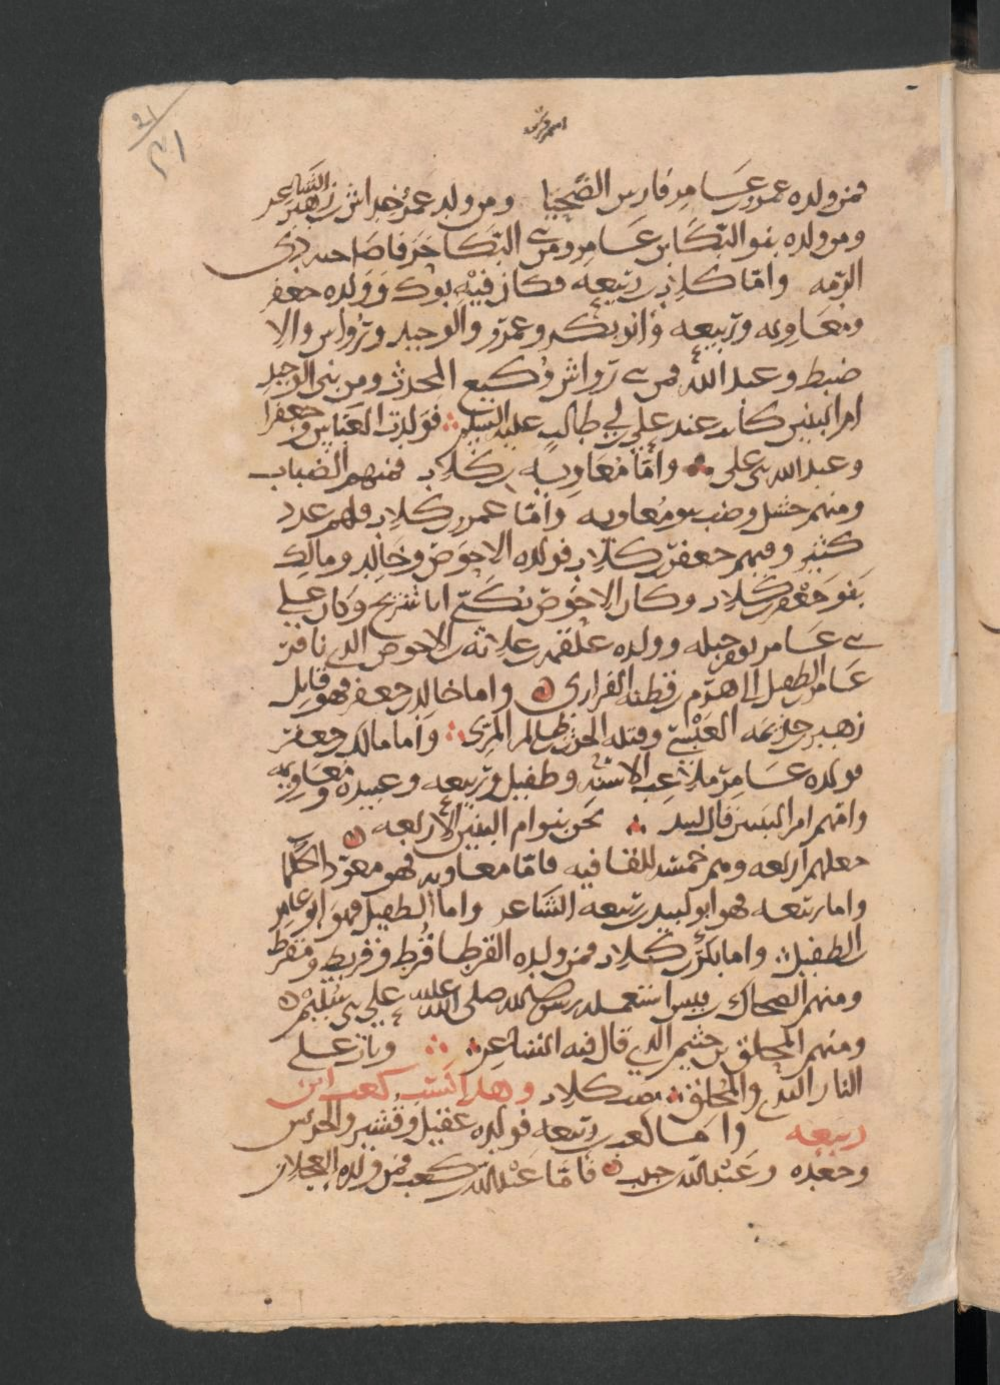 21
٢١
فمن ولده عمرو بن عامر فارس الضحيا ومن ولد عمرو خداش بن زهير الشاعر
ومن ولده بنو البكا بن عامر ومن بني البكا خرقا صاحبه ذي
الرمه واما كلاب بن ربيعه فكان فيه نوك وولده جعفر
ومعاويه وربيعه وابو بكر وعمرو والوحيد ورواس والا
ضبط وعبد الله فمن بني رواس وكيع المحدث ومن بني الوحيد
ام البنين كانت عند علي بن ابي طالب عليه السلم فولدت العباس وجعفرا
وعبد الله بني علي واما معاويه بن كلاب فمنهم الضباب
ومنهم حسل وضب بنو معاويه واما عمرو بن كلاب فلهم عدد
كثير ومنهم جعفر بن كلاب فولده الاحوص وخالد ومالك
بنو جعفر بن كلاب وكان الاحوص يكنى ابا شريح وكان علي
بني عامر يوم جبله وولده علقمه بن علاثه بن الاحوص الذي نافر
عامر بن الطفيل الى هرم بن قطنه الفزاري واما خالد بن جعفر فهو قاتل
زهير بن جذيمه العبسي وقتله الحرث بن ظالم المري واما مالك بن جعفر
فولده عامر ملاعب الاسنه وطفيل وربيعه وعبيده ومعاويه
وامهم ام البنين قال لبيد نحن بنو ام البنين الاربعه
جعلهم اربعه وهم خمسه للقافيه فاما معاويه فهو معود الحكما
واما ربيعه فهو ابو لبيد بن ربيعه الشاعر واما الطفيل فهو ابو عامر
بن الطفيل واما بكر بن كلاب فمن ولده القرطا قرط وقريط ومقرط
ومنهم الضحاك بن قيس استعمله رسول الله صلى الله عليه علي بني سليم
ومنهم المحلق بن حنتم الذي قال فيه الشاعر وبات علي
النار الندي والمحلق كلاب وهذا نسب كعب ابن
ربيعه واما كعب بن ربيعه فولده عقيل وقشير والحريش
وجعده وعبد الله وحبيب فاما عبد الله بن كعب فمن ولده العجلان